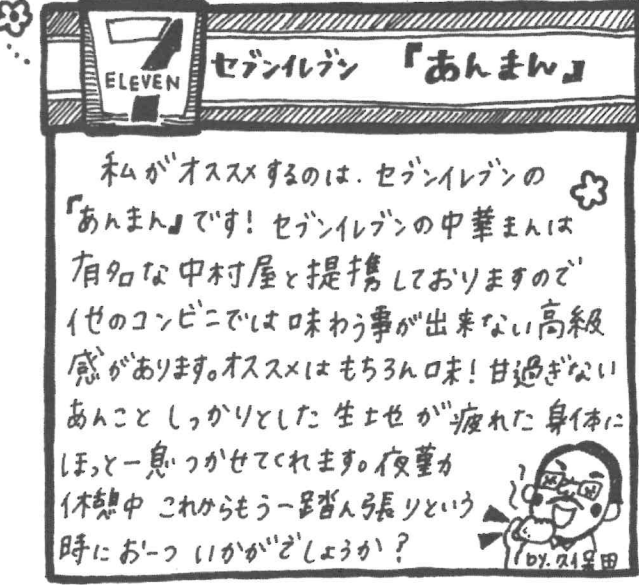 7
ELEVEN
セブンイレブン 『あんまん』
私がオススメするのは、セブンイレブンの
『あんまん』です！セブンイレブンの中華まんは
有名な中村屋と提携しておりますので
他のコンビニでは味わう事が出来ない高級
感があります。オススメはもちろん味！甘過ぎない
あんことしっかりとした生地が疲れた身体に
ほっと一息つかせてくれます。夜勤
休憩中これからもう一踏ん張りという
時にお一ついかがでしょうか？
by.